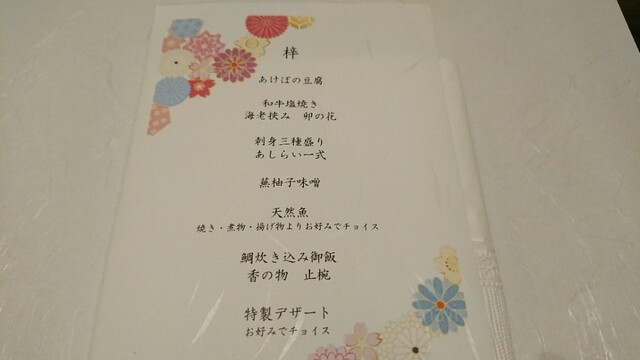 梓
あけぼの豆腐
和牛塩焼き
海老挟み 卯の花
刺身三種盛り
あしらい一式
蕪柚子味噌
天然魚
焼き・煮物・揚げ物よりお好みでチョイス
鯛炊き込み御飯
香の物 止椀
特製デザート
お好みでチョイス